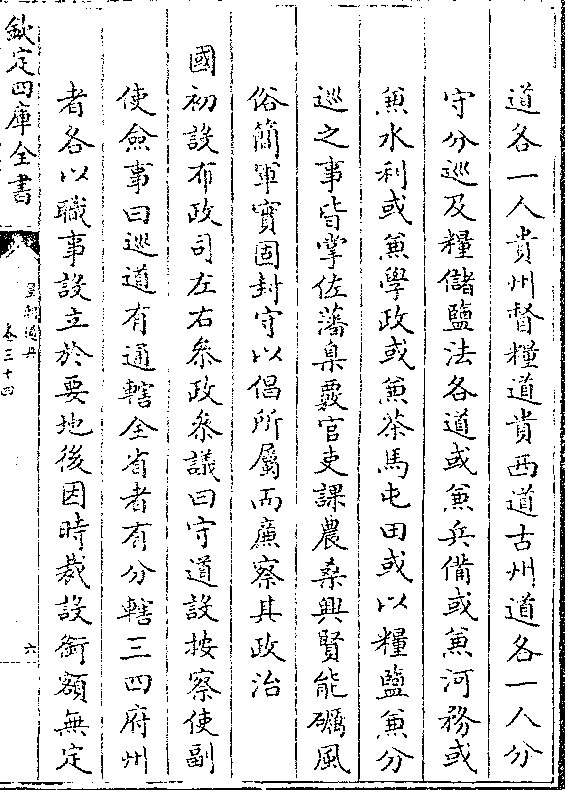 道各一人貴州督糧道貴西道古州道各一人分
守分巡及糧儲鹽法各道或兼兵備或兼河務或
兼水利或兼學政或兼茶馬屯田或以糧鹽兼分
巡之事皆掌佐藩臬覈官吏課農桑興賢能礪風
俗簡軍實固封守以倡所屬而廉察其政治
國初設布政司左右叅政叅議曰守道設按察使副
使僉事曰巡道有通轄全省者有分轄三四府州
者各以職事設立於要地後因時裁設銜額無定
欽定四庫全書
卷三十四
六